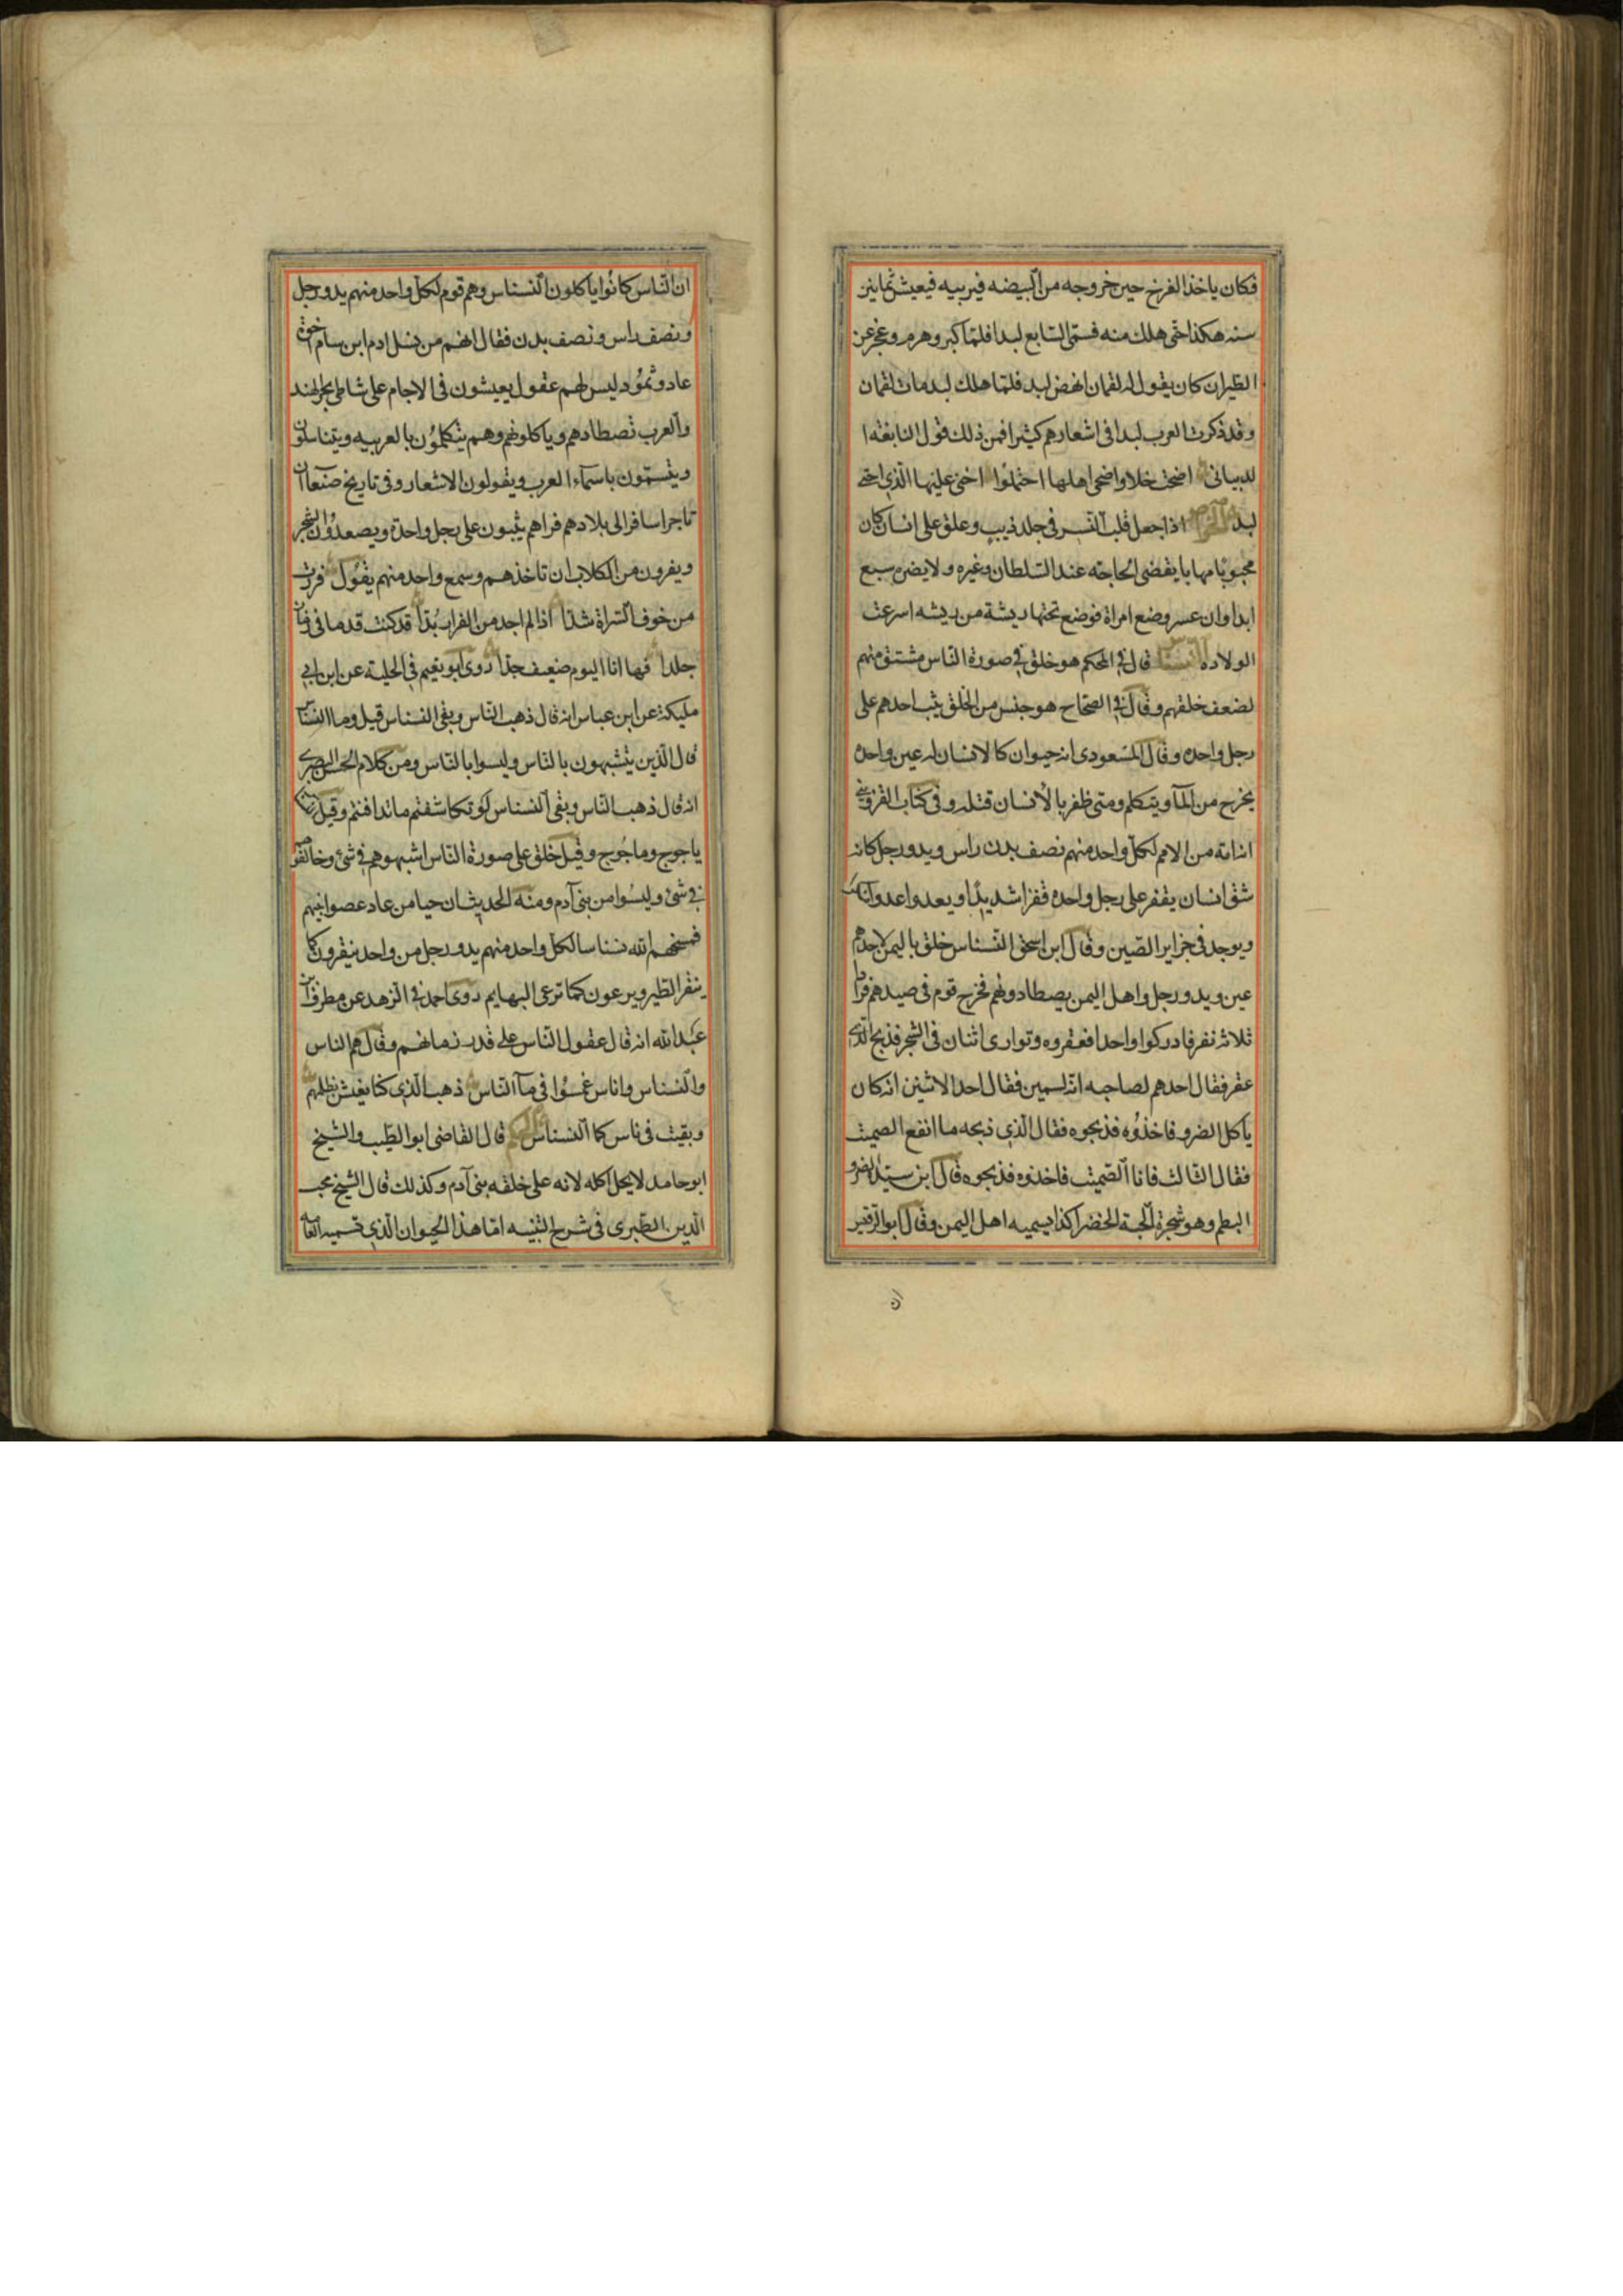 فكان ياخذ الفرخ حين خروجه من البيضه فيربيه فيعيش ثمانين
سنه هكذا حتى هلك منه فسمى السابع لبدا فلما كبر وهرم وعجز عن
الطيران كان يقول له لقمان انهض لبد فلما هلك لبد مات لقمان
وقد ذكرت العرب لبدا فى اشعارهم كثيرا فمن ذلك قول النابغه ا
لدبيانى اضحت خلا واضحى اهلها احتملوا اخنى عليها الذي اخنى
لبد الخواص اذا جعل قلب النسر فى جلد ذيب وعلق على انسان كان
محبوبا مهابا يقضى الحاجته عند السلطان وغيره ولا يضره سبع
ابدا وان عسر وضع امراة فوضع تحتها ريشة من ريشه اسرعت
الولاده النسناس قال في المحكم هو خلق في صورة الناس مشتق منهم
لضعف خلقهم وقال في الصحاح هو جنس من الخلق يثب احدهم على
رجل واحده وقال المسعودى انه حيوان كالانسان له عين واحده
يخرج من المآ ويتكلم ومتى ظفر بالانسان قتله وفى كتاب القزوينى
انه امة من الامم لكل واحد منهم نصف بدن راس ويد ورجل كانه
شق انسان يقفر على رجل واحده قفزا شديدا ويعدوا عدوا
ويوجد فى جزاير الصين وقال ابن اسحق النسناس خلق باليمن لاحدهم
عين ويد ورجل واهل اليمن يصطادونهم فخرج قوم فى صيدهم فراوا
ثلاثه نفر فادركوا واحدا فعقروه وتوارى اثنان فى الشجر فذبح الذي
عقر فقال احدهم لصاحبه انه لسمين فقال احد الاثنين انه كان
ياكل الضرو فاخذوه فذبحوه فقال الذي ذبحه ما انفع الصمت
فقال الثالث فانا الصميت فاخذوه فذبحوه قال ابن سيده الضرو
البطم وهو شجرة الحبة الخضرا كذا يسميه اهل اليمن وقال ابو الرقير
ان الناس كانوا ياكلون النسناس وهم قوم لكل واحد منهم يد ورجل
ونصف راس ونصف بدن فقال انهم من نسل ادم ابن سام اخوة
عاد وثمود ليس لهم عقول يعيشون فى الاجام على شاطى بحر الهند
والعرب تصطادهم وياكلونهم وهم يتكلمون بالعربيه ويتناسلون
ويتسمون باسمآء العرب ويقولون الاشعار وفى تاريخ صنعآ ان
تاجرا سافر الى بلادهم فراهم يثبون على رجل واحدة ويصعدون الشجر
ويفرون من الكلاب ان تاخذهم وسمع واحد منهم يقول فررت
من خوف الشراة شدا اذا لم اجد من الفرار بدا قد كنت قدما فى زمانى
جلدا فها انا اليوم ضعيف جدا روى ابو نعيم في الحلية عن ابن ابي
مليكة عن ابن عباس انه قال ذهب الناس وبقى النسناس قيل وما النسناس
قال الذين يتشبهون بالناس وليسوا بالناس ومن كلام الحسن البصرى
انه قال ذهب الناس وبقى النسناس لو تكاشفتم ما تدافنتم وقيل
ياجوج وماجوج وقيل خلق على صورة الناس اشبهوهم في شئ وخالفوهم
في شئ وليسوا من بنى آدم ومنه الحديث ان حيا من عاد عصوا نبيهم
فمسخهم الله نسناسا لكل واحد منهم يد ورجل من واحد ينقرون كما
ينقر الطير ويرعون كما ترعى البهايم روى احمد في الزهد عن مطرف ابن
عبد الله انه قال عقول الناس على قدر زمانهم وقال هم الناس
والنسناس واناس غمسوا فى مآ الناس ذهب الذي كنا نعيش بظلهم
وبقيت فى ناس كما النسناس الحكم قال القاضى ابو الطيب والشيخ
ابو حامد لا يحل اكله لانه على خلقه بنى آدم وكذلك قال الشيخ محب
الدين الطبرى فى شرح التنبيه اما هذا الحيوان الذي تسميه العامة